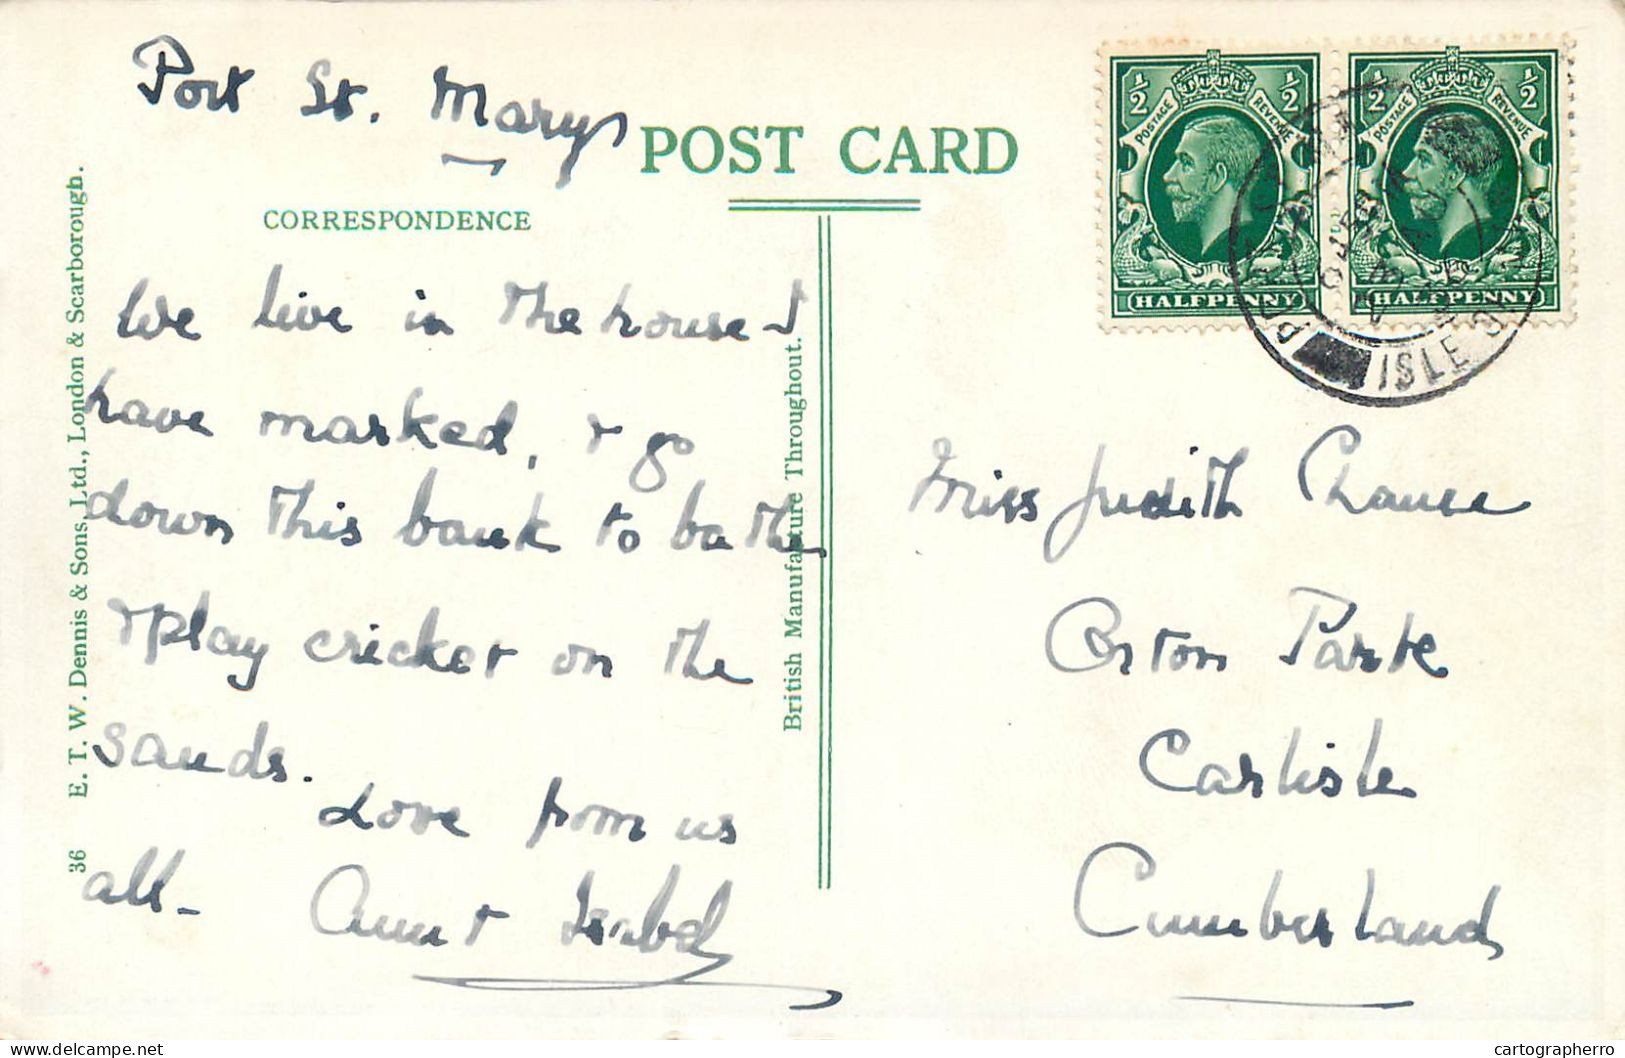 Port St. Marys
POST CARD
CORRESPONDENCE
We live in the house I
have marked, & go
down this bank to bathe
& play cricket on the
sands.
Love from us
all -
Aunt Isabel
36 E. T. W. Dennis & Sons, Ltd., London & Scarborough.
British Manufacture Throughout.
½ ½
POSTAGE REVENUE
HALFPENNY
½ ½
POSTAGE REVENUE
HALFPENNY
ISLE OF
Miss Judith Chance
Orton Park
Carlisle
Cumberland
cartographerro